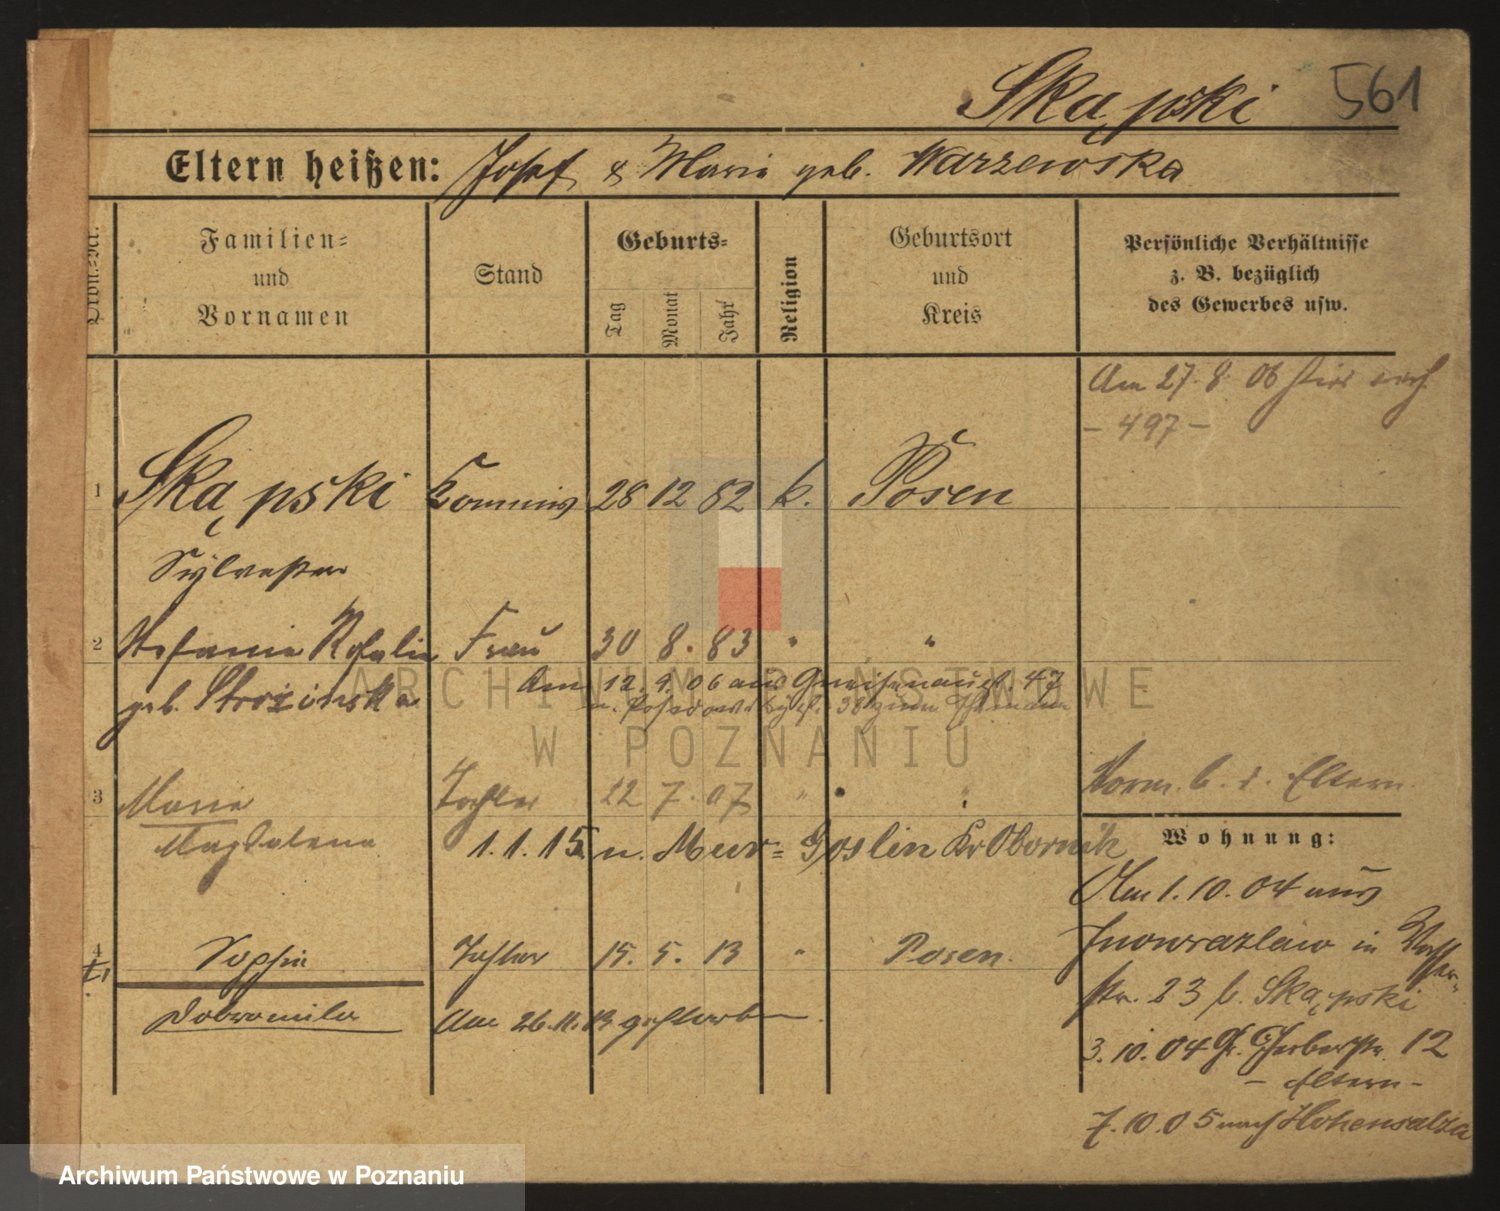 Skąpski 561
Eltern heißen: Josef & Marie geb. Warzewska
Familien-
und
Vornamen
Stand
Geburts-
Tag
Monat
Jahr
Religion
Geburtsort
und
Kreis
Persönliche Verhältnisse
z. B. bezüglich
des Gewerbes usw.
Am 27. 8. 06
- 497 -
1 Skąpski Commis 28 12 82 k. Posen
Sylvester
2 Stefanie Rosalie Frau 30 8. 83 " "
geb. Stróżinska Am 12. 9. 06 aus Gneisenaustr. 47
3 Marie Tochter 22 7. 07 " " Vorm. b. d. Eltern.
Magdalena 1. 1. 15 n. Mur= Goslin Kr Obornik
Wohnung:
Am 1. 10. 04 aus
4 Sophie Tochter 15. 5. 13 " Posen. Inowrazlaw in Wasser-
str. 23 b. Skąpski
Dobromila Am 26. 11. 13 gestorben.
3. 10. 04 Gr. Gerberstr. 12
- Eltern -
7. 10. 05 nach Hohensalza
ARCHIWUM PAŃSTWOWE
W POZNANIU
Archiwum Państwowe w Poznaniu